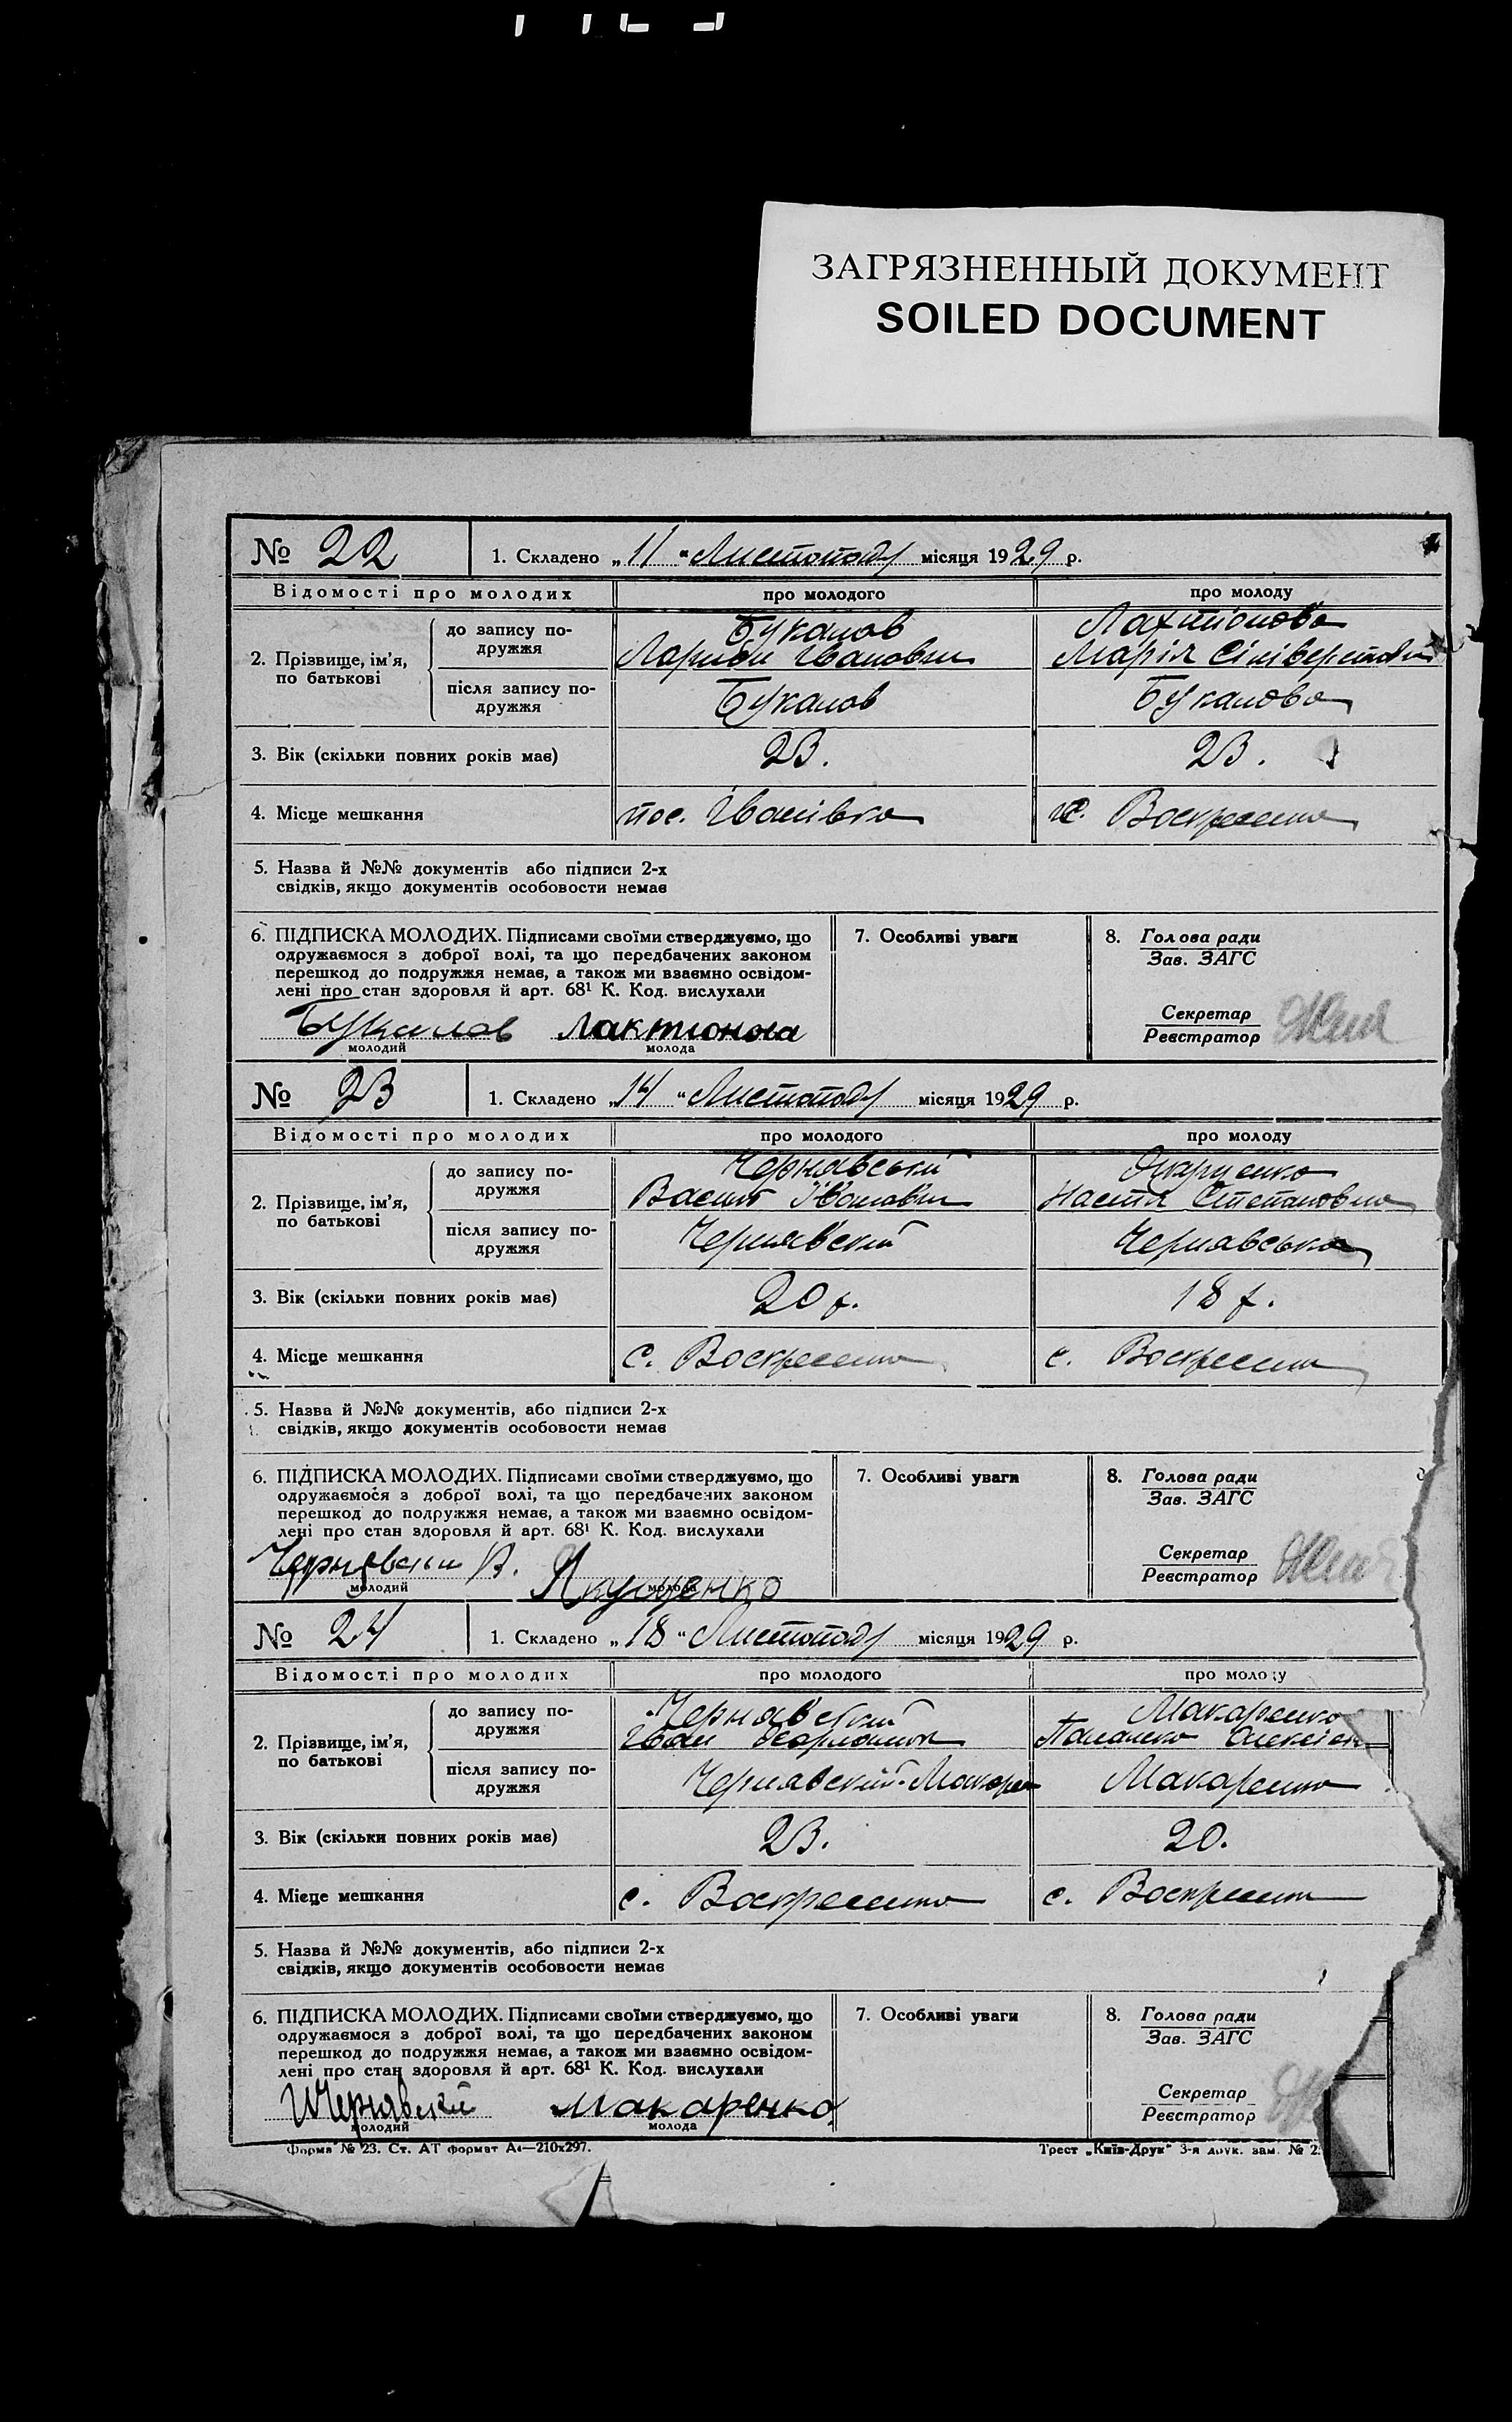 ЗАГРЯЗНЕННЫЙ ДОКУМЕНТ
SOILED DOCUMENT
№ 22 1. Складено „11“ Листопаду місяця 1929 р.
Відомості про молодих про молодого про молоду
2. Прізвище, ім’я, по батькові
до запису подружжя Букалов Іванович Марія
після запису подружжя Букалов Букалова
3. Вік (скільки повних років має) 23. 23.
4. Місце мешкання пос. Іванівка с. Воскресенка
5. Назва й №№ документів або підписи 2-х
свідків, якщо документів особовости немає
6. ПІДПИСКА МОЛОДИХ. Підписами своїми стверджуємо, що 7. Особливі уваги 8. Голова ради
одружаємося з доброї волі, та що передбачених законом Зав. ЗАГС
перешкод до подружжя немає, а також ми взаємно освідом-
лені про стан здоровля й арт. 68¹ К. Код. вислухали Секретар
Букалов Лактионова Реєстратор
молодий молода
№ 23 1. Складено „14“ Листопаду місяця 1929 р.
Відомості про молодих про молодого про молоду
2. Прізвище, ім’я, по батькові
до запису подружжя Чернявський Василь Іванович Настя Степановна
після запису подружжя Чернявский Чернявська
3. Вік (скільки повних років має) 20 р. 18 р.
4. Місце мешкання с. Воскресенка с. Воскресенка
5. Назва й №№ документів, або підписи 2-х
свідків, якщо документів особовости немає
6. ПІДПИСКА МОЛОДИХ. Підписами своїми стверджуємо, що 7. Особливі уваги 8. Голова ради
одружаємося з доброї волі, та що передбачених законом Зав. ЗАГС
перешкод до подружжя немає, а також ми взаємно освідом-
лені про стан здоровля й арт. 68¹ К. Код. вислухали Секретар
Чернявский В. Якущенко Реєстратор
молодий молода
№ 24 1. Складено „18“ Листопаду місяця 1929 р.
Відомості про молодих про молодого про молоду
2. Прізвище, ім’я, по батькові
до запису подружжя Чернявский Іван Макаренко
після запису подружжя Чернявский-Макарен Макаренко
3. Вік (скільки повних років має) 23. 20.
4. Місце мешкання с. Воскресенка с. Воскресенка
5. Назва й №№ документів, або підписи 2-х
свідків, якщо документів особовости немає
6. ПІДПИСКА МОЛОДИХ. Підписами своїми стверджуємо, що 7. Особливі уваги 8. Голова ради
одружаємося з доброї волі, та що передбачених законом Зав. ЗАГС
перешкод до подружжя немає, а також ми взаємно освідом-
лені про стан здоровля й арт. 68¹ К. Код. вислухали Секретар
И Чернявский Макаренко Реєстратор
молодий молода
Форма № 23. Ст. АТ формат А4—210х297. Трест „Київ-Друк“ 3-я друк. зам. № 2